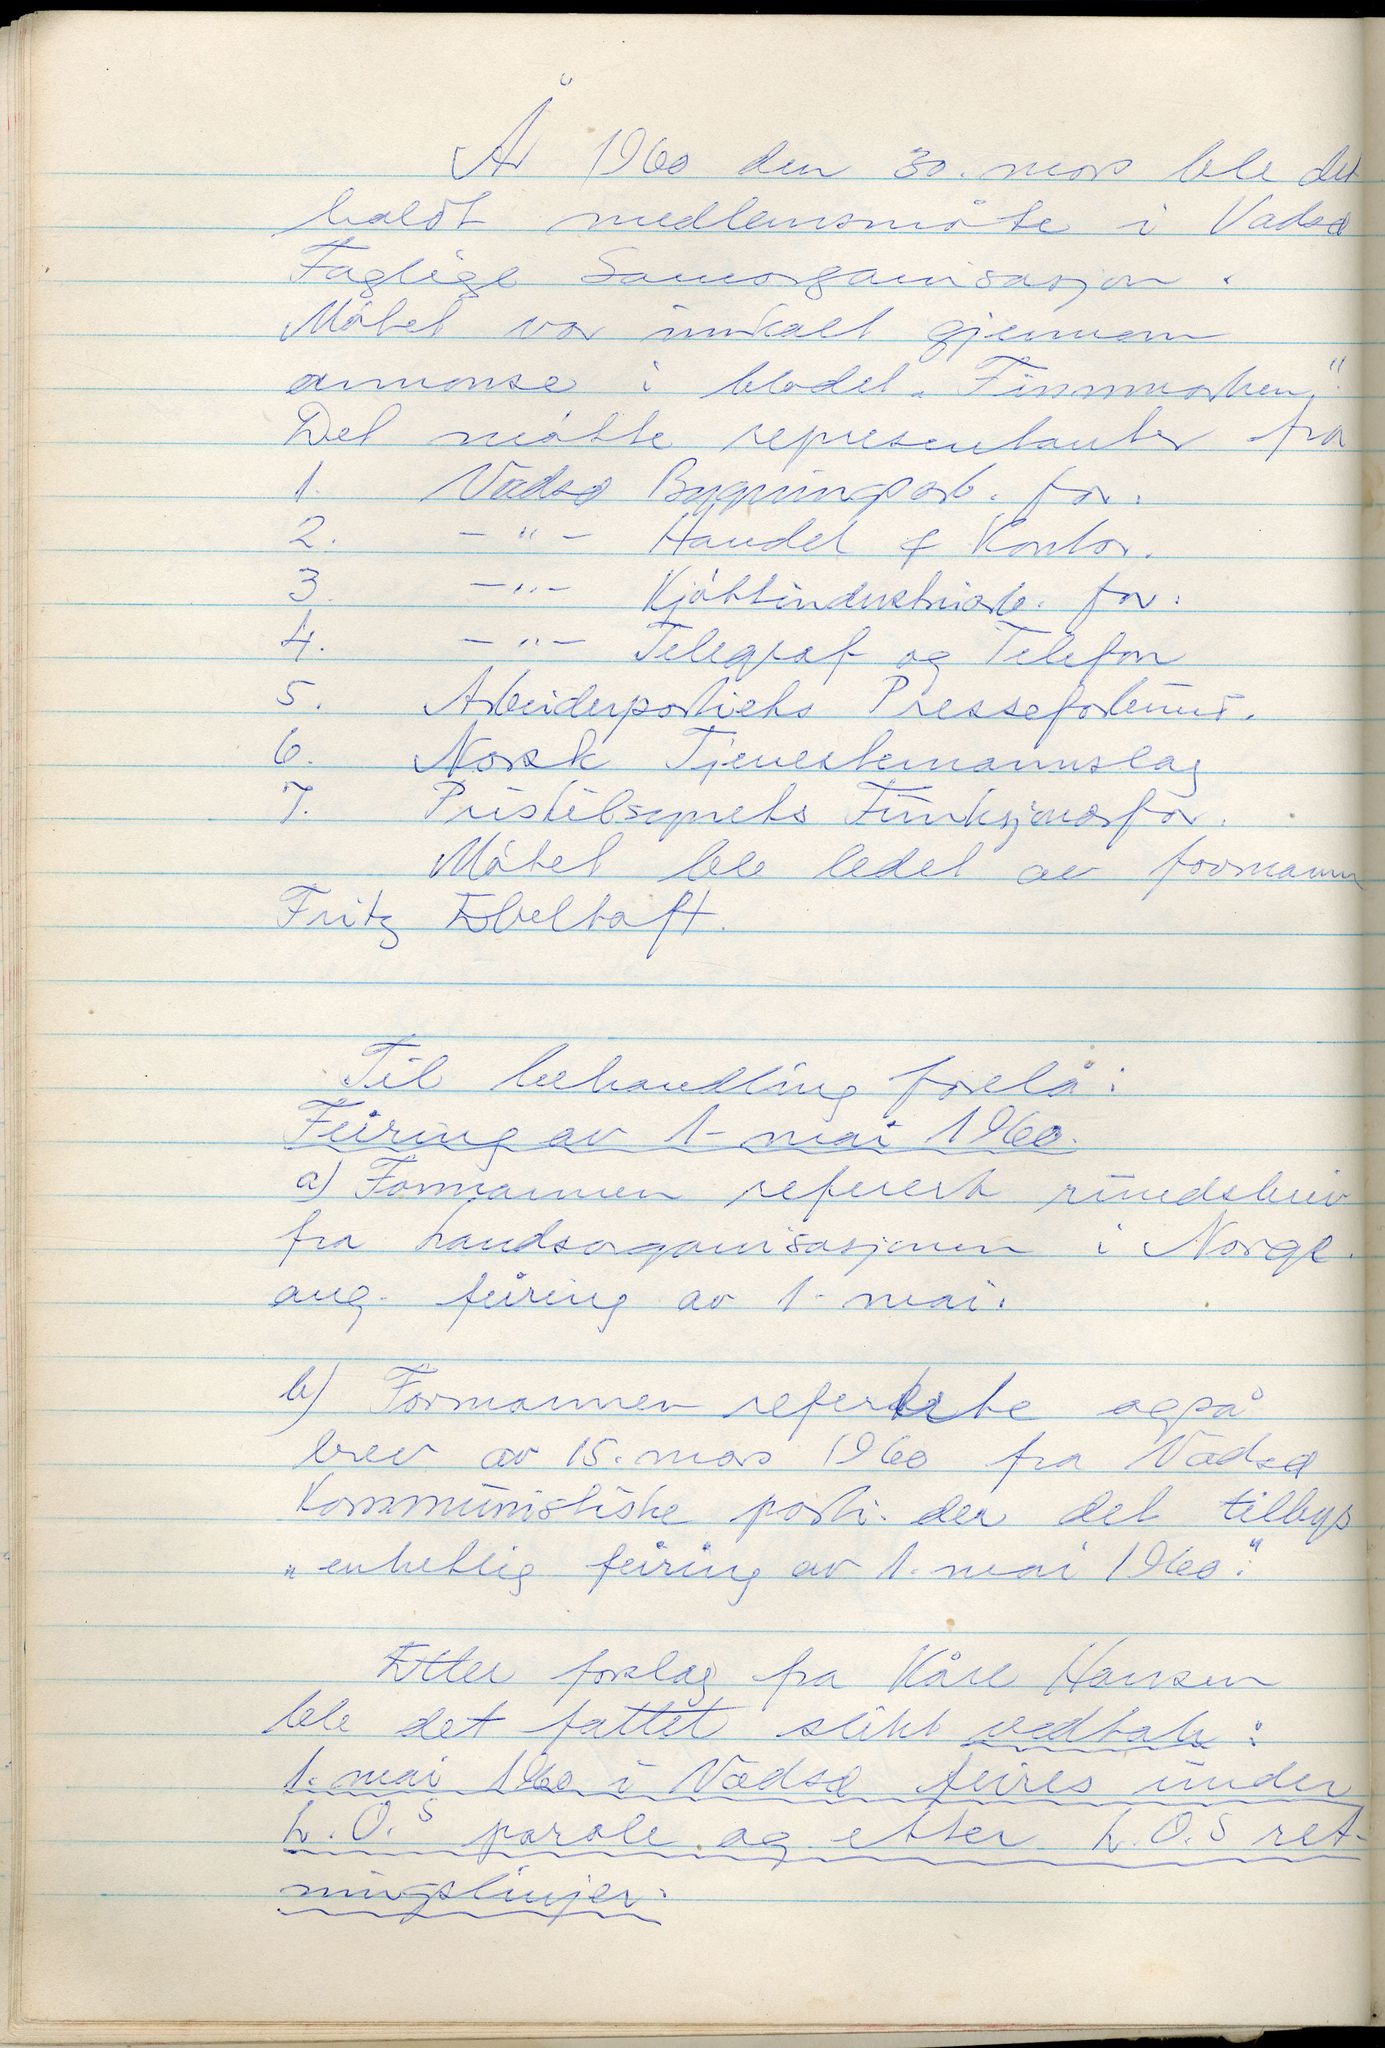 År 1960 den 30. mars ble det
haldt medlemsmøte i Vadsø
Faglige Samorganisasjon.
Møtet var innkalt gjennom
annonse i bladet „Finnmarken."
Det møtte representanter fra
1. Vadsø Bygningsarb. for.
2. – " – Handel & Kontor.
3. – " – Kjøttindustriarb. for.
4. – " – Telegraf og Telefon
5. Arbeiderpartiets Presseforbund.
6. Norsk Tjenestemannslag
7. Pristilsynets Funksjonærfor.
Møtet ble ledet av formann
Fritz Ebeltoft.
Til behandling forelå:
Feiring av 1. mai 1960.
a) Formannen referert rundskriv
fra Landsorganisasjonen i Norge.
ang. feiring av 1. mai.
b) Formannen refererte også
brev av 15. mars 1960 fra Vadsø
Kommunistiske parti. der det tilbys
„enhetlig feiring av 1. mai 1960."
Etter forslag fra Kåre Hansen
ble det fattet slikt vedtak:
1. mai 1960 i Vadsø feires under
L.O.s parole og etter L.O.s ret-
ningslinjer.